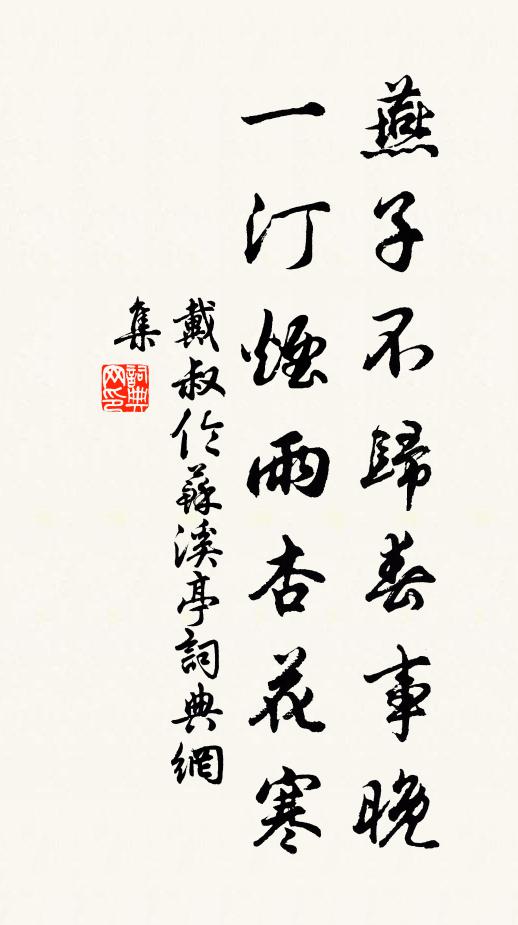 燕子不歸春事晚
一汀煙雨杏花寒
戴叔伦蘇溪亭詞典網
集
詞典網印